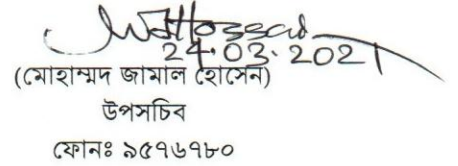 24.03.2021
(মোহাম্মদ জামাল হোসেন)
উপসচিব
ফোনঃ ৯৫৭৬৭৮০